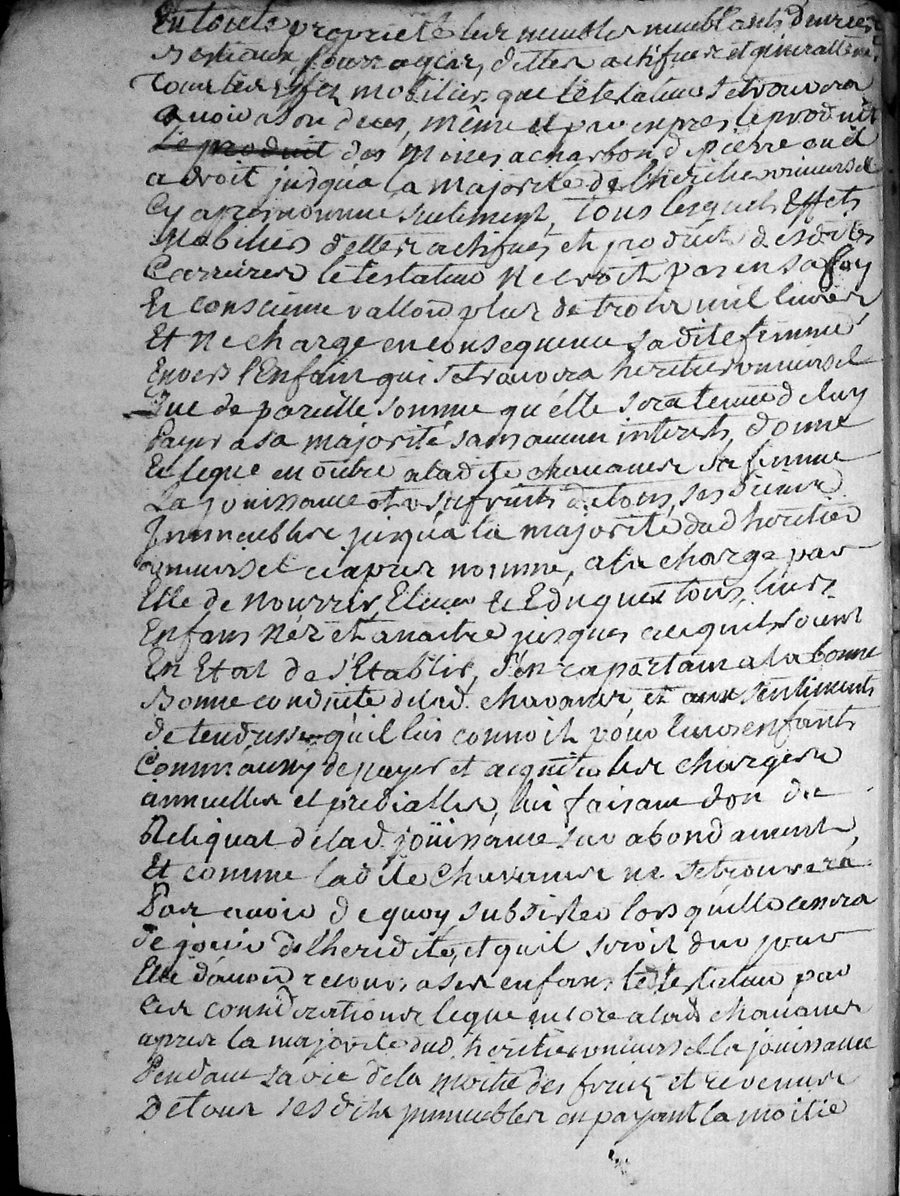 En toute propriété les meubles meublants, denrées
Bestiaux, fourrages, dettes actifves et générallement
Tous les Effets mobiliers que le testateur se trouvera
avoir a son deces, même et par expres le produit
Le produit des Mines a charbon de pierre ou il
a droit jusqua la majorité de l'heritier universel
Cy apres nommé seulement, Tous lesquels Effets
Mobiliers dettes actifves et produit desdites
Carrieres le testateur Ne croit pas en sa foy
Et conscience valloir plus de trois mil livres
Et Ne charge en consequence sadite femme
Envers l'Enfant qui se trouvera heritier universel
Que de pareille somme qu'elle sera tenue de luy
Payer a sa majorité sans aucun interets, donne
Et legue en outre a ladite chavanes sa femme
La jouissance et usufruit de tous ses biens
Immeubles jusqu'a la majorité dud heritier
universel ci apres nommé, a la charge par
Elle de Nourrir, Elever et Eduquer tous leurs
Enfans Nés et a naitre jusques ace quils soient
En Etat de s'Etablir, s'en rapportant a la bonne
Bonne conduite de lad. chavanes, et aux sentiments
de tendresse qu'il lui connoit pour leurs enfants
Comm' aussy de payer et acquitter les charges
annuelles et prédialles, lui faisant don du
Reliquat de lad. joüissance sur abondament,
Et comme ladite Chavanes ne se trouvera
Pas avoir de quoy subsister lorsqu'elle cessera
de jouir de l'heridité, et quil seroit dur pour
Elle d'avoir recours a ses enfans ledit testateur par
ces considerations legue encore a lad. chavanes
apres la majorité dud. heritier universel la jouissance
Pendant sa vie de la moitié des fruits et revenus
De tous sesdits immeubles en payant la moitié